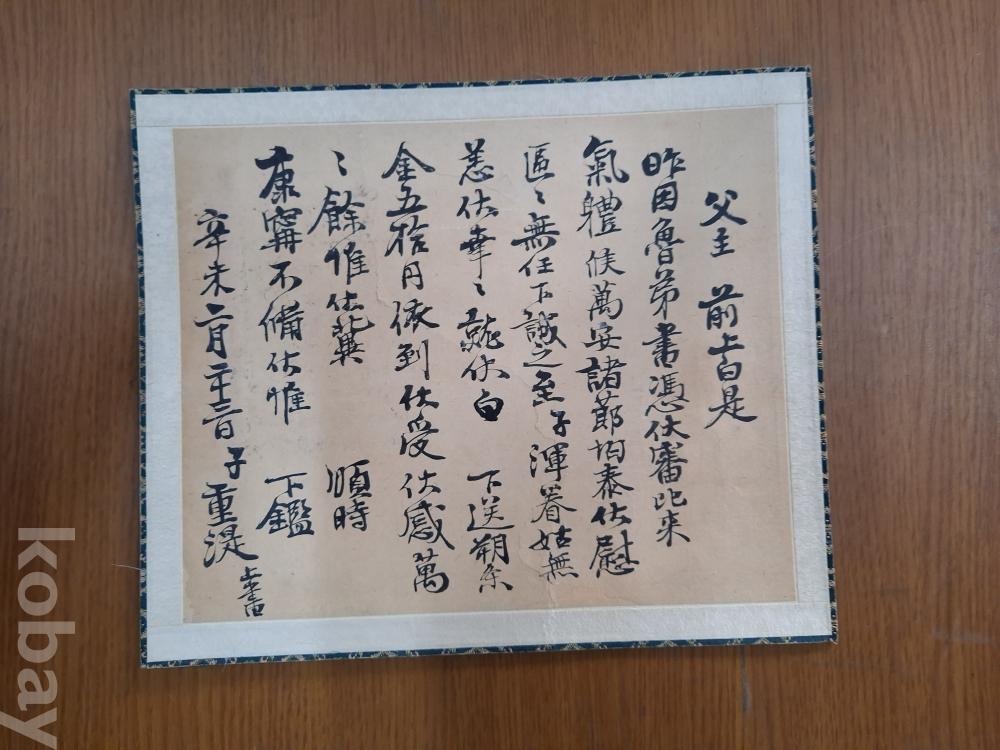 父主 前上白是
昨因魯弟書憑伏審比來
氣體候萬安諸節均泰伏慰
區〻無任下誠之至子渾眷姑無
恙伏幸〻就伏白 下送朔条
金五拾円依到伏受伏感萬
〻餘惟伏冀 順時
康寧不備伏惟 下鑑
辛未二月二十二日 子重湜 上書
kobay